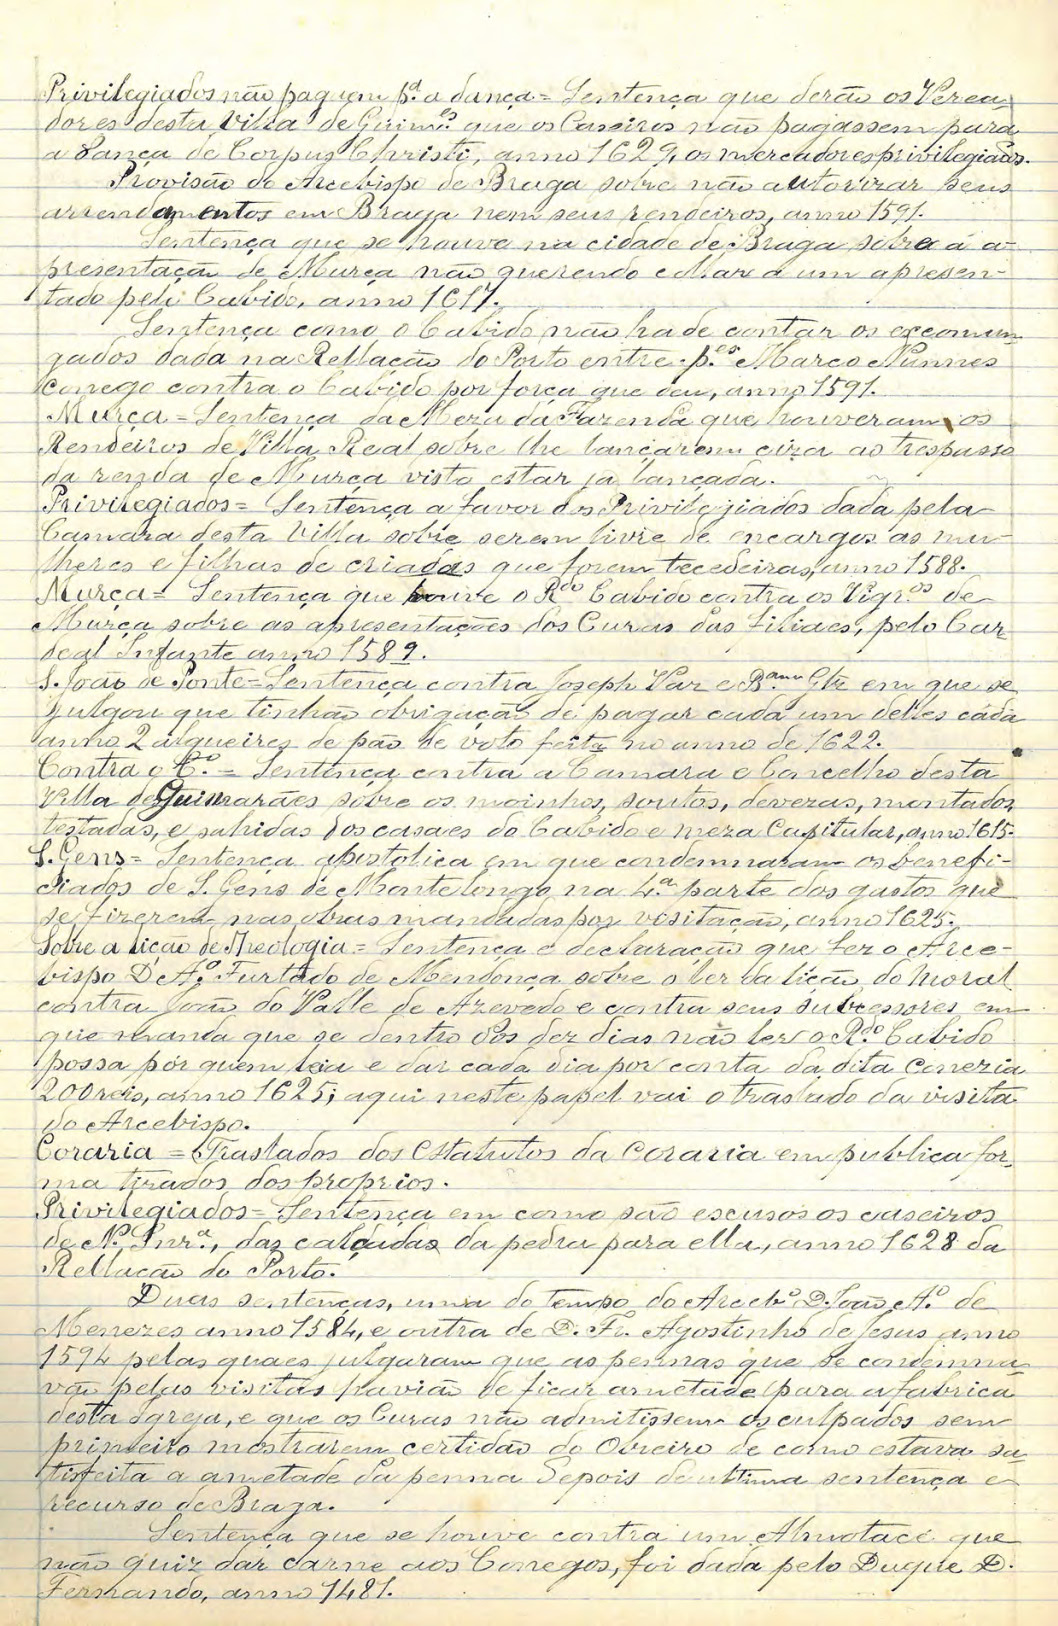 Privilegiados não paguem p.ª a dança = Sentença que derão os Verea-
dores desta Villa de Guim.es que os Caseiros não pagassem para
a Dança de Corpus Christi, anno 1629, os mercadores privilegiados.
Provisão do Arcebispo de Braga sobre não autorizar seus
arrendamentos em Braga nem seus rendeiros, anno 1591.
Sentença que se houve na cidade de Braga sobre a a-
presentação de Murça não querendo collar a um apresen-
tado pelo Cabido, anno 1617.
Sentença como o Cabido não hade contar os excomun-
gados dada na Rellação do Porto entre p.es Marco Nunnes
conego contra o Cabido por força que deu, anno 1591.
Murça = Sentença da Meza da Fazenda que houveram os
Rendeiros de Villa Real sobre lhe lançarem ciza ao trespasse
da renda de Murça visto estar já lançada.
Privilegiados = Sentença a favor dos Privilegiados dada pela
Camara desta Villa sobre serem livre de encargos as mu-
lheres e filhas de criadas que forem tecedeiras, anno 1588.
Murça = Sentença que houve o R.do Cabido contra os Vigr.os de
Murça sobre as apresentações dos Curas das filiaes, pelo Car-
deal Infante anno 1589.
S. João de Ponte = Sentença contra Joseph Vaz e B.ameu Glz em que se
julgou que tinhão obrigação de pagar cada um delles cada
anno 2 alqueires de pão de voto feita no anno de 1622.
Contra o C.º = Sentença contra a Camara e Concelho desta
Villa de Guimarães sobre os moinhos, soutos, devezas, montados,
testadas, e sahidas dos casaes do Cabido e meza Capitular, anno 1615.
S. Gens = Sentença apostolica em que condemnaram os benefi-
ciados de S. Gens de Montelongo na 4.ª parte dos gastos que
se fizerem nas obras mandadas por visitação, anno 1625.
Sobre a lição de Theologia = Sentença e declaração que fez o Arce-
bispo D. A.º Furtado de Mendonça sobre o ler da lição do moral
contra João do Valle de Azevedo e contra seus successores em
que manda que se dentro dos dez dias não ler o R.do Cabido
possa pôr quem leia e dar cada dia por conta da dita conezia
200 reis, anno 1625; aqui neste papel vai o traslado da visita
do Arcebispo.
Coraria = Traslados dos Estatutos da Coraria em publica for-
ma tirados dos proprios.
Privilegiados = Sentença em como são escusos os caseiros
de N. Snr.ª, das calçadas da pedra para ella, anno 1628 da
Rellação do Porto.
Duas sentenças, uma do tempo do Arceb.º D. João A.º de
Menezes anno 1584, e outra de D. Fr. Agostinho de Jesus anno
1594 pelas quaes julgaram que as pennas que se condemna-
vão pelas visitas havião de ficar ametade para a fabrica
desta Igreja, e que os Curas não admitissem os culpados sem
primeiro mostrarem certidão do Obreiro de como estava sa-
tisfeita a ametade da penna depois da ultima sentença e
recurso de Braga.
Sentença que se houve contra um Almotacé que
não quiz dar carne aos Conegos, foi dada pelo Duque D.
Fernando, anno 1481.